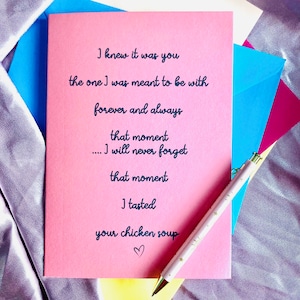 I knew it was you
the one I was meant to be with
forever and always
that moment
.... I will never forget
that moment
I tasted
your chicken soup